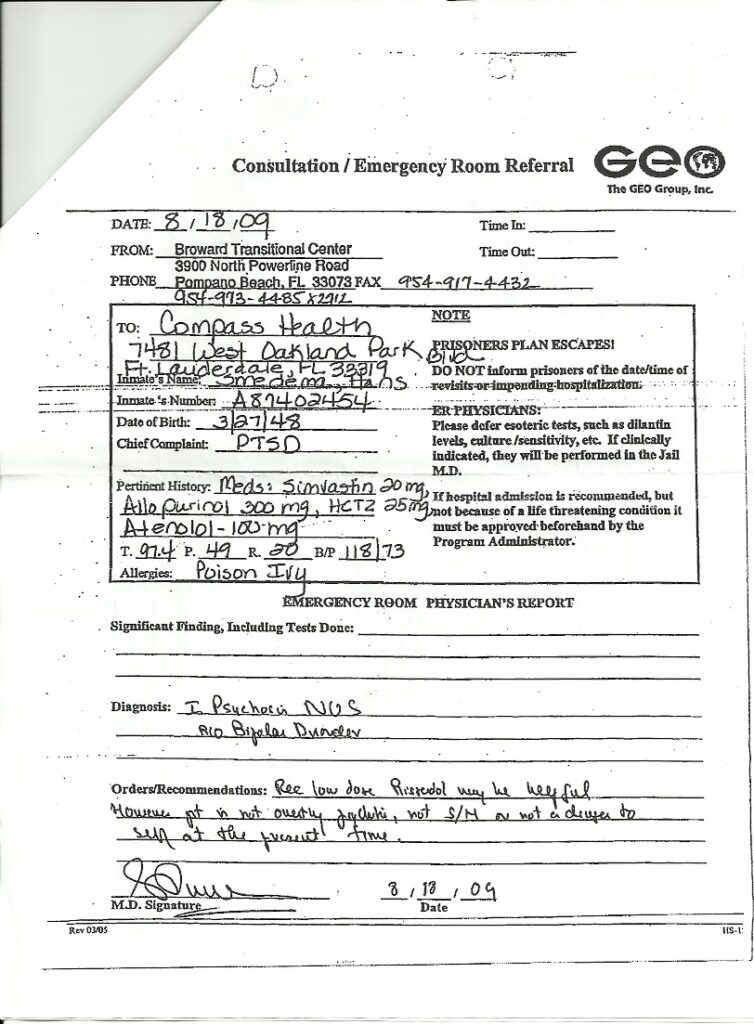 Consultation / Emergency Room Referral
GEO
The GEO Group, Inc.
DATE: 8/18/09
Time In:
FROM: Broward Transitional Center
3900 North Powerline Road
Time Out:
PHONE Pompano Beach, FL 33073 FAX 954-917-4432
954-973-4485 x2912
TO: Compass Health
7481 West Oakland Park Blvd
Ft. Lauderdale, FL 33319
Inmate's Name: Smedema, Hans
Inmate's Number: A87402454
Date of Birth: 3/27/48
Chief Complaint: PTSD
Pertinent History: Meds: Simvastin 20 mg,
Allopurinol 300 mg, HCTZ 25 mg,
Atenolol - 100 mg
T. 97.4 P. 49 R. 20 B/P 118/73
Allergies: Poison Ivy
NOTE
PRISONERS PLAN ESCAPES!
DO NOT inform prisoners of the date/time of
revisits or impending hospitalization.
ER PHYSICIANS:
Please defer esoteric tests, such as dilantin
levels, culture/sensitivity, etc. If clinically
indicated, they will be performed in the Jail
M.D.
If hospital admission is recommended, but
not because of a life threatening condition it
must be approved beforehand by the
Program Administrator.
EMERGENCY ROOM PHYSICIAN'S REPORT
Significant Finding, Including Tests Done:
Diagnosis: I Psychosis NOS
R/O Bipolar Disorder
Orders/Recommendations: Rec low dose Risperdol may be helpful
However pt is not overtly, not S/H or not a danger to
self at the present time.
M.D. Signature
8/18/09
Date
Rev 03/05
HS-1